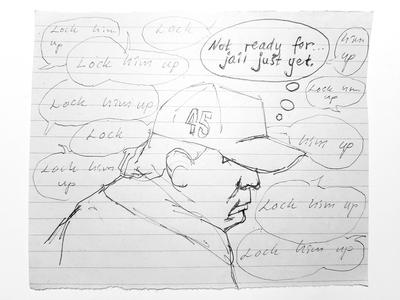 Lock him
up
Lock
him
up
Not ready for...
jail just yet.
Lock him up
Lock him
up
Lock him up
45
Lock
him up
Lock him
up
Lock him up
Lock him up